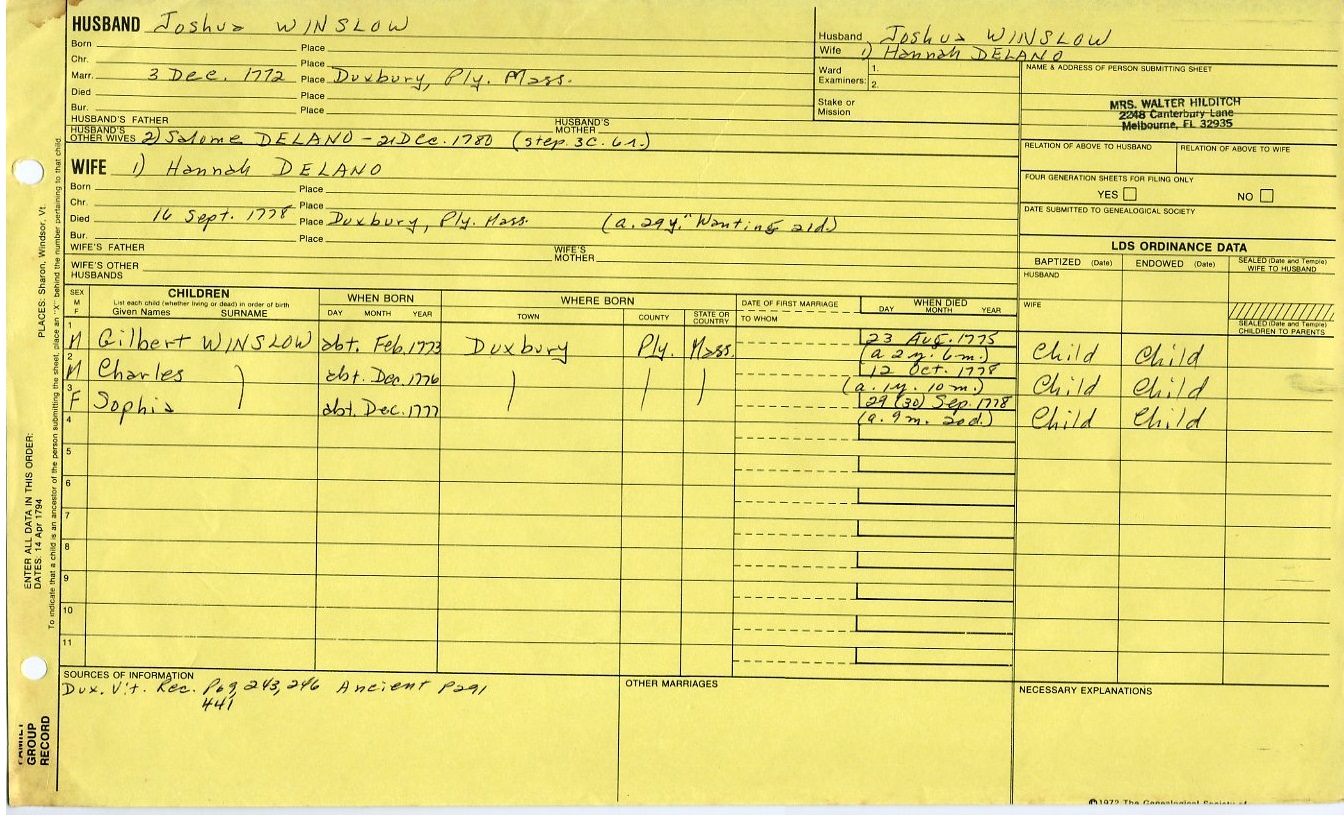 HUSBAND Joshua WINSLOW
Born Place
Chr. Place
Marr. 3 Dec. 1772 Place Duxbury, Ply. Mass.
Died Place
Bur. Place
HUSBAND'S FATHER HUSBAND'S MOTHER
HUSBAND'S OTHER WIVES 2) Salome DELANO - 21 Dec. 1780 (step. 3C. 6r.)
WIFE 1) Hannah DELANO
Born Place
Chr. Place
Died 16 Sept. 1778 Place Duxbury, Ply. Mass. (a. 29 y. "Wanting 21d.)
Bur. Place
WIFE'S FATHER WIFE'S MOTHER
WIFE'S OTHER HUSBANDS
Husband Joshua WINSLOW
Wife 1) Hannah DELANO
Ward 1.
Examiners: 2.
Stake or Mission
NAME & ADDRESS OF PERSON SUBMITTING SHEET
MRS. WALTER HILDITCH
2248 Canterbury Lane
Melbourne, FL 32935
RELATION OF ABOVE TO HUSBAND RELATION OF ABOVE TO WIFE
FOUR GENERATION SHEETS FOR FILING ONLY
YES NO
DATE SUBMITTED TO GENEALOGICAL SOCIETY
LDS ORDINANCE DATA
BAPTIZED (Date) ENDOWED (Date) SEALED (Date and Temple) WIFE TO HUSBAND
HUSBAND
WIFE
SEALED (Date and Temple) CHILDREN TO PARENTS
SEX M F CHILDREN WHEN BORN WHERE BORN DATE OF FIRST MARRIAGE WHEN DIED
List each child (whether living or dead) in order of birth
Given Names SURNAME DAY MONTH YEAR TOWN COUNTY STATE OR COUNTRY TO WHOM DAY MONTH YEAR
1 M Gilbert WINSLOW abt. Feb. 1773 Duxbury Ply. Mass. 23 Aug. 1775 (a 2 y. 6 m.) Child Child
2 M Charles abt. Dec. 1776 12 Oct. 1778 (a. 1 y. 10 m.) Child Child
3 F Sophia abt. Dec. 1777 29 (30) Sep. 1778 (a. 9 m. 20 d.) Child Child
4
5
6
7
8
9
10
11
SOURCES OF INFORMATION
Dux. Vit. Rec. P69, 243, 246 Ancient P291
441
OTHER MARRIAGES
NECESSARY EXPLANATIONS
©1972 The Genealogical Society of
PLACES: Sharon, Windsor, Vt.
ENTER ALL DATA IN THIS ORDER:
DATES: 14 Apr 1794
To indicate that a child is an ancestor of the person submitting the sheet, place an "X" behind the number pertaining to that child.
FAMILY GROUP RECORD